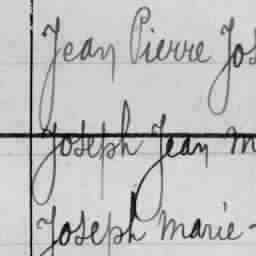 Jean Pierre Jos
Joseph Jean M
Joseph Marie-